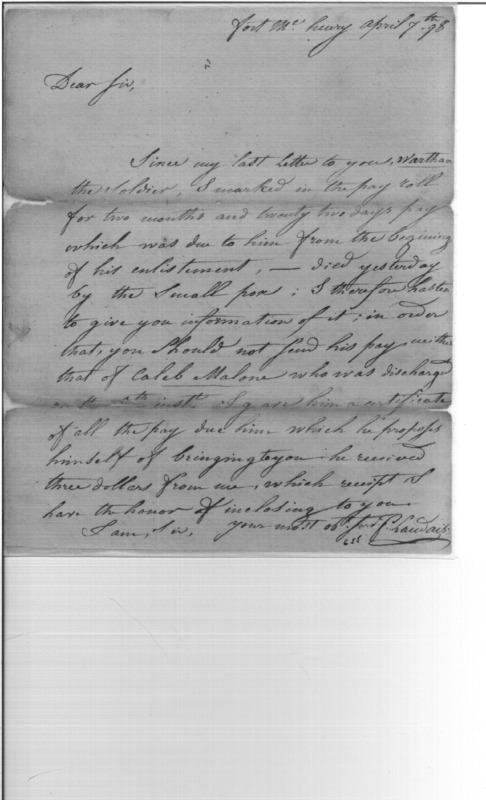 fort Mc. henry April 7th 98
Dear Sir,
Since my last letter to you, Wartham
the Soldier, I marked in the pay roll
for two months and twenty two days pay
which was due to him from the begining
of his enlistement, — died yesterday
by the Small pox; I therefore hasten
to give you information of it; in order
that, you Should not Send his pay, neither
that of Caleb Malone who was discharged
on the inst. I gave him a certificate
of all the pay due him which he proposes
himself of bringing to you - he received
three dollars from me, which receipt I
have the honor of inclosing to you
I am, Sir, your most ob. Servt.